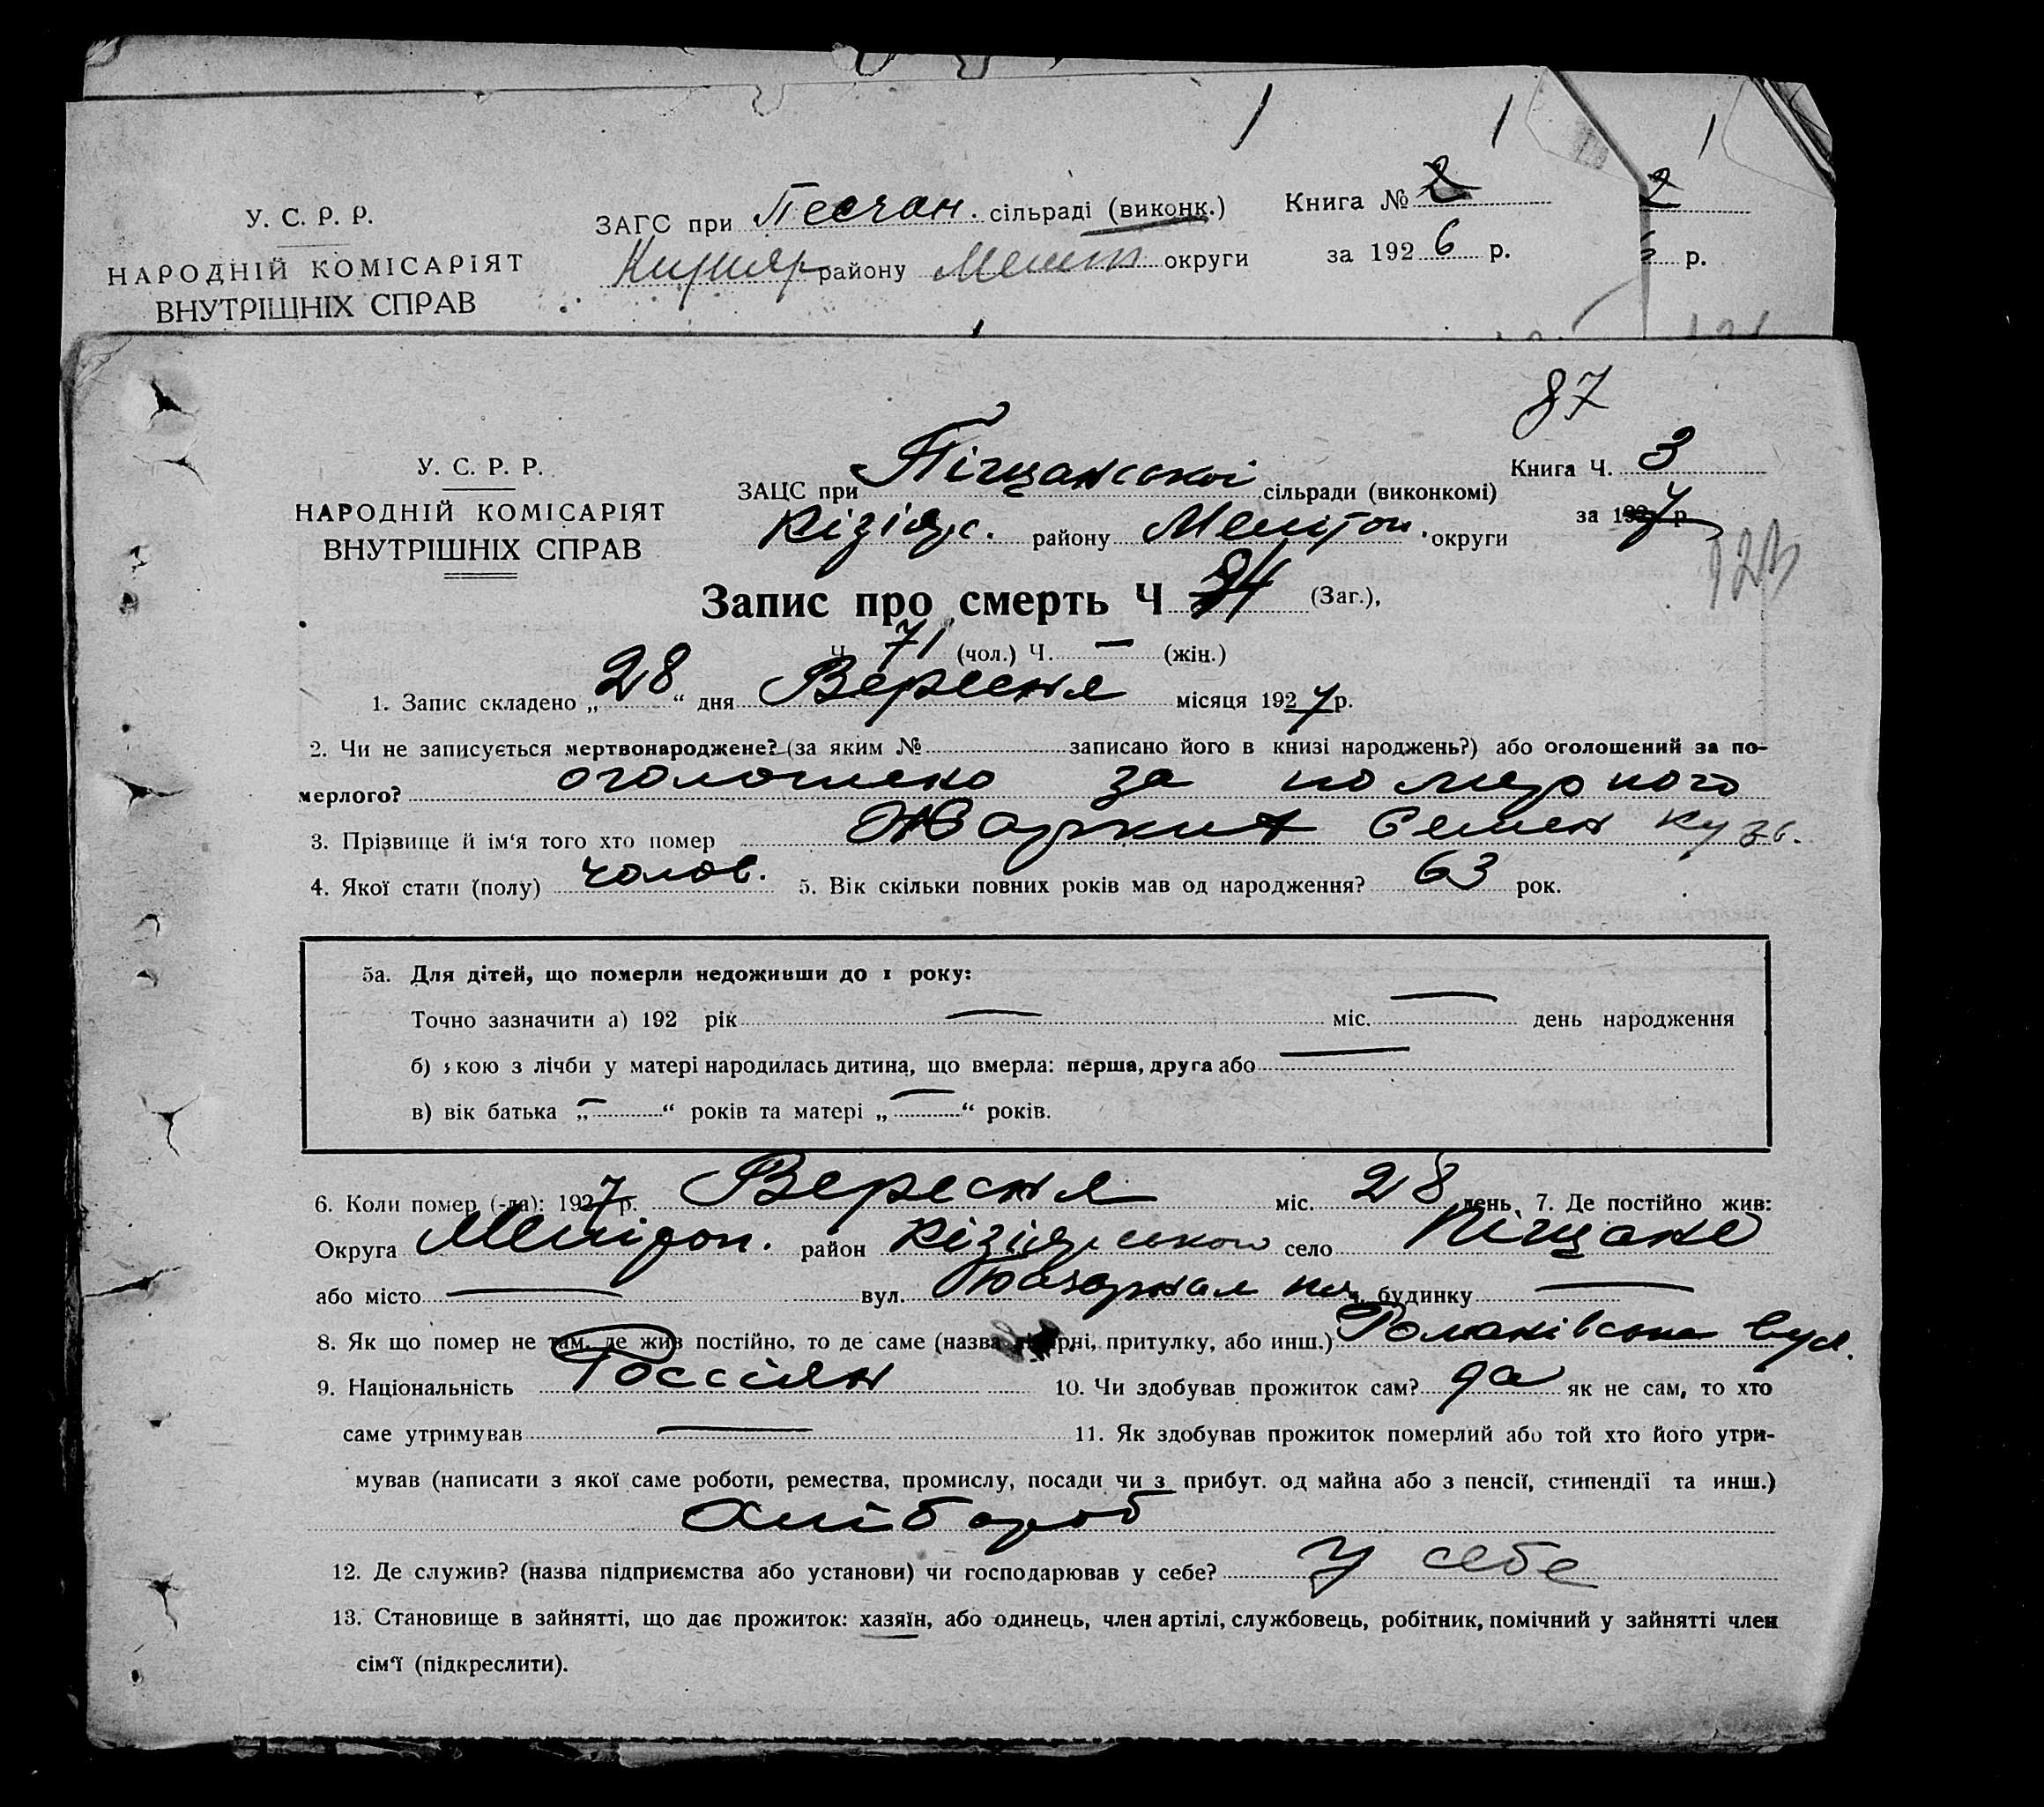 У. С. Р. Р.
НАРОДНІЙ КОМІСАРІЯТ
ВНУТРІШНІХ СПРАВ
ЗАГС при Песчан. сільраді (виконк.)
району Мелит округи
Книга № 2
за 1926 р.
2
р.
87
У. С. Р. Р.
НАРОДНІЙ КОМІСАРІЯТ
ВНУТРІШНІХ СПРАВ
ЗАЦС при Піщанської сільради (виконкомі)
Кізіяр. району Мелітоп. округи
Книга Ч. 3
за 1927 р.
Запис про смерть Ч (Заг.),
Ч. 71 (чол.) Ч. — (жін.)
1. Запис складено „28“ дня Вересня місяця 1927 р.
2. Чи не записується мертвонароджене? (за яким № записано його в книзі народжень?) або оголошений за по-
мерлого? оголошено за помершого
3. Прізвище й ім‘я того хто помер Жаркит Семен Кузь.
4. Якої стати (полу) чолов. 5. Вік скільки повних років мав од народження? 63 рок.
5а. Для дітей, що померли недоживши до 1 року:
Точно зазначити а) 192 рік — міс. — день народження
б) якою з лічби у матері народилась дитина, що вмерла: перша, друга або —
в) вік батька „—“ років та матері „—“ років.
6. Коли помер (-ла): 1927 р. Вересня міс. 28 день, 7. Де постійно жив:
Округа Мелітоп. район Кізіярською село Піщане
або місто — вул. будинку —
8. Як що помер не там, де жив постійно, то де саме (назва лікарні, притулку, або инш.) Романівська вул.
9. Національність Россіян 10. Чи здобував прожиток сам? да як не сам, то хто
саме утримував — 11. Як здобував прожиток померлий або той хто його утри-
мував (написати з якої саме роботи, ремества, промислу, посади чи з прибут. од майна або з пенсії, стипендії та инш.)
хлібороб
12. Де служив? (назва підприємства або установи) чи господарював у себе? У себе
13. Становище в зайнятті, що дає прожиток: хазяїн, або одинець, член артілі, службовець, робітник, помічний у зайнятті член
сім‘ї (підкреслити).